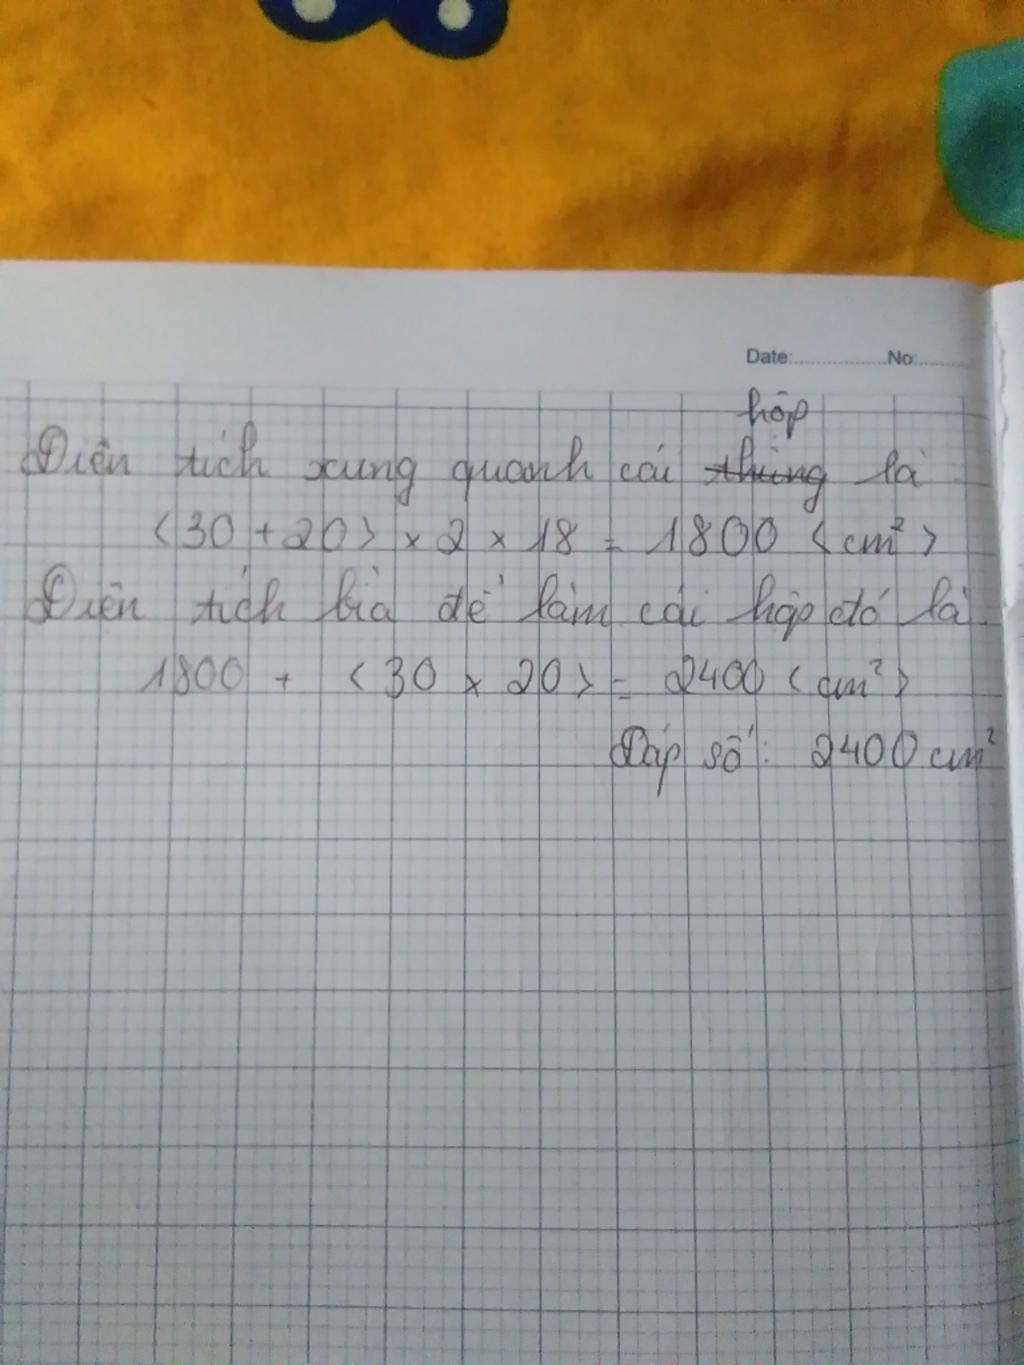 Date: No:
Diện tích xung quanh cái thùng hộp là
(30 + 20) x 2 x 18 = 1800 (cm²)
Diện tích bìa để làm cái hộp đó là
1800 + (30 x 20) = 2400 (cm²)
Đáp số: 2400 cm²